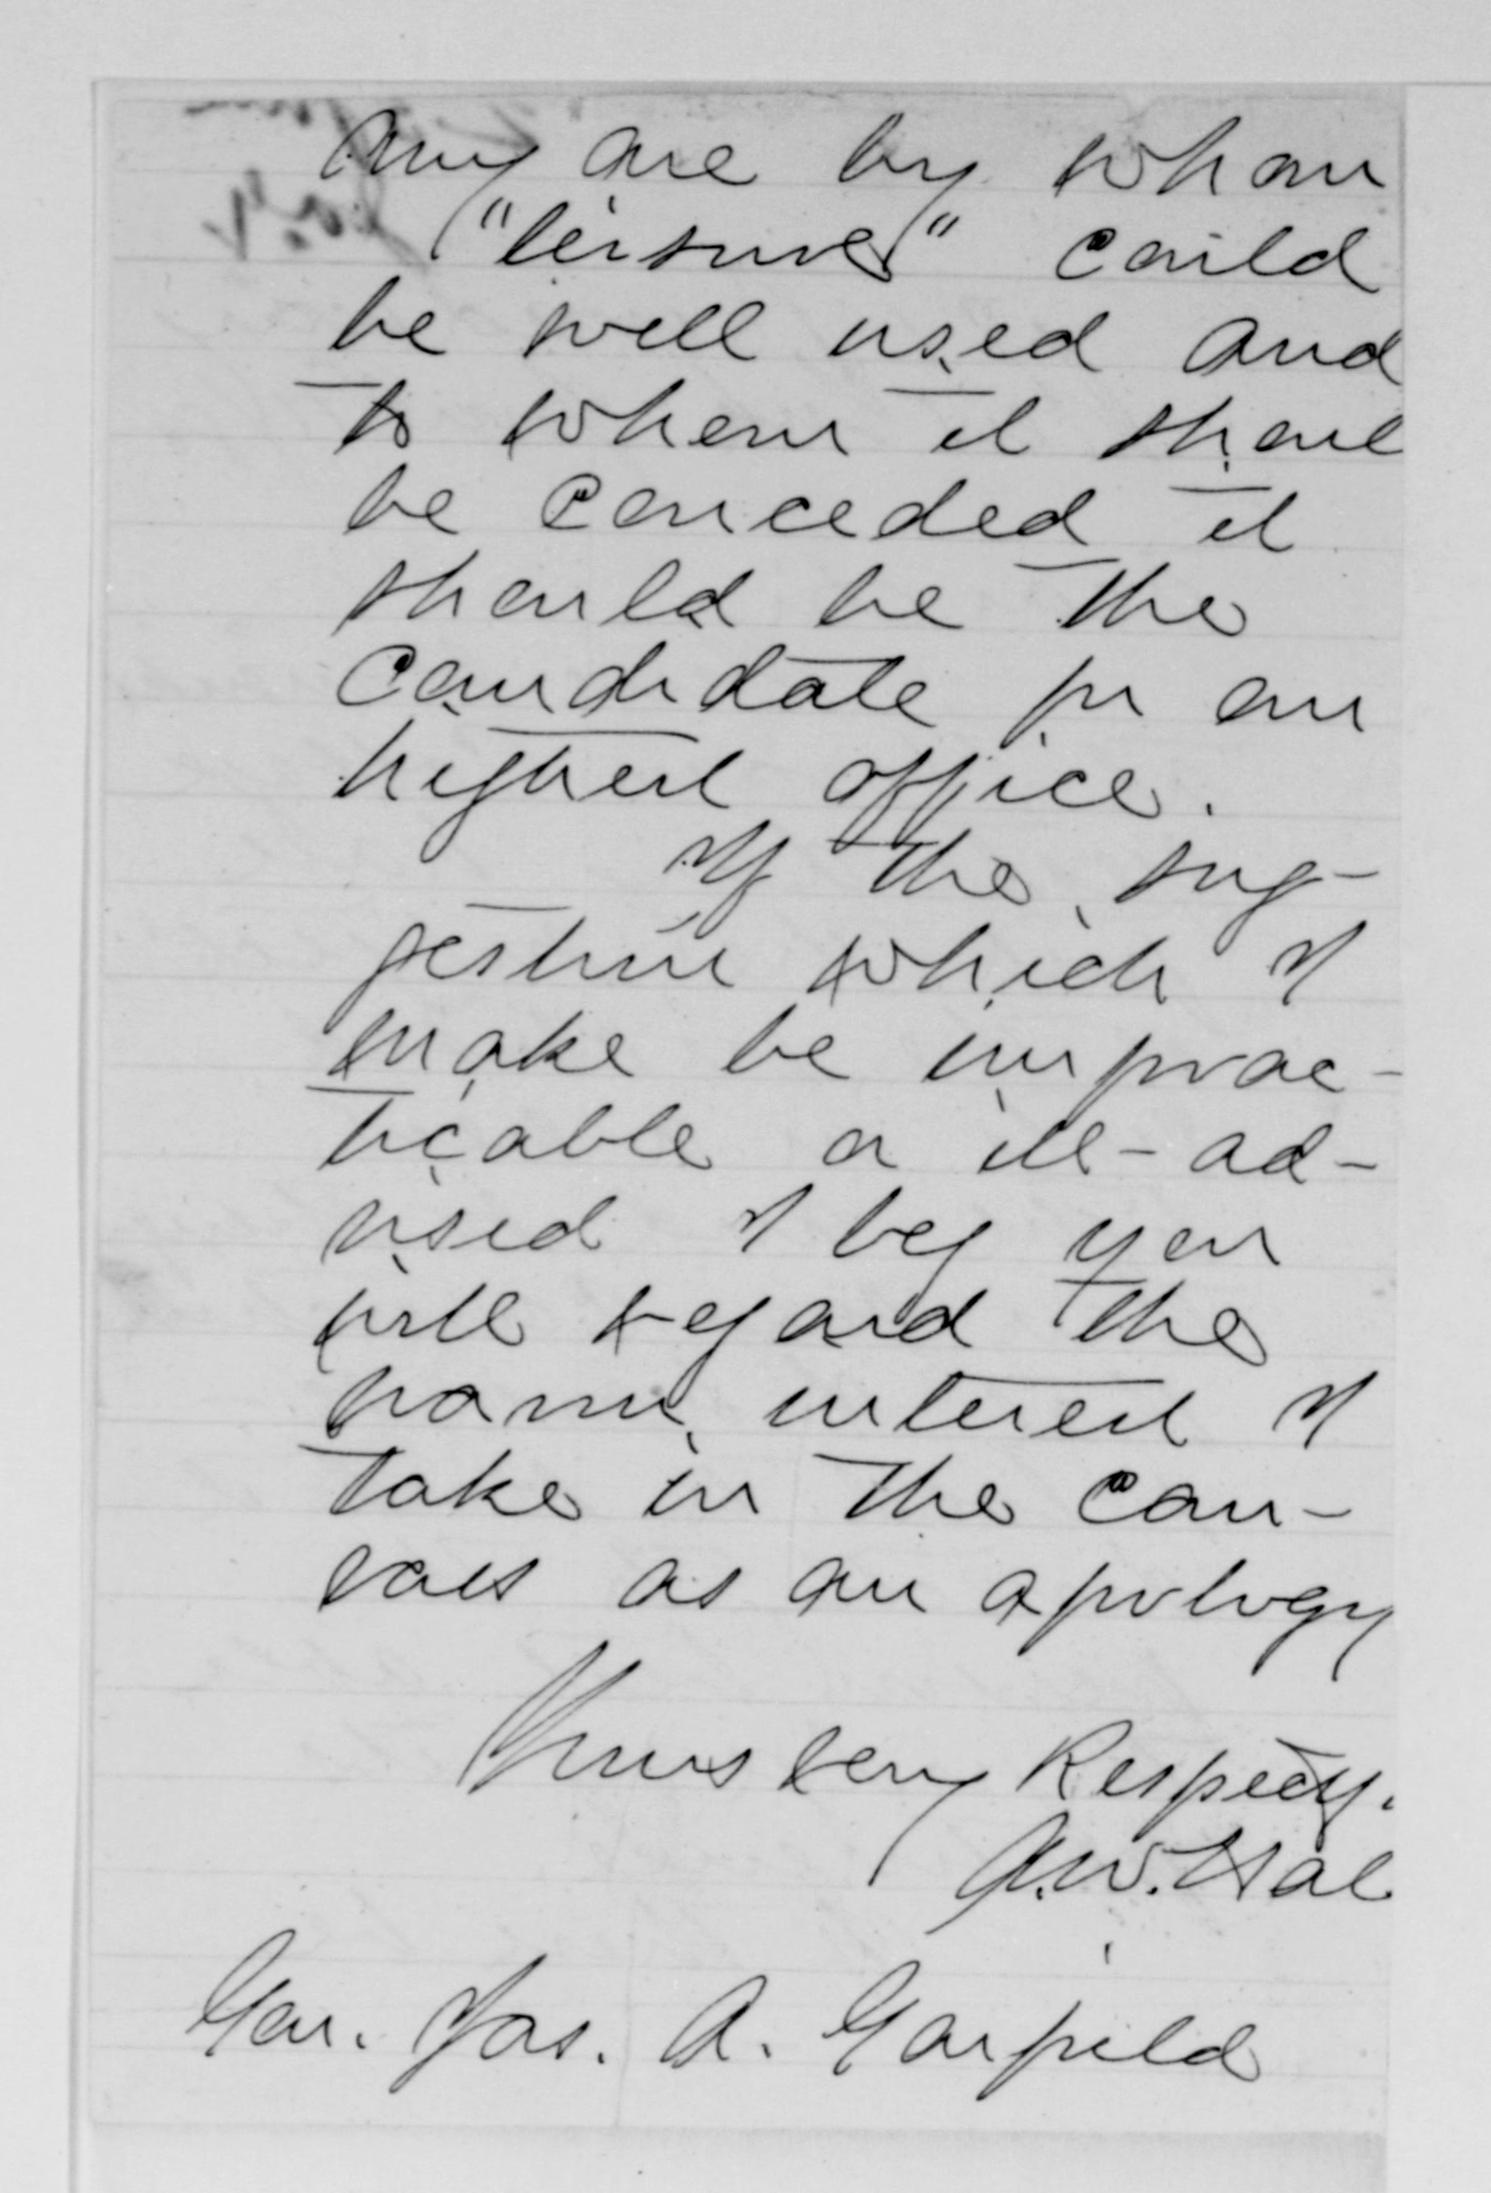 any one by whom
"leisure" could
be well used and
to whom it shoul
be conceded it
should be the
candidate for our
highest office.
If the sug-
gestion which I
make be imprac-
ticable or ill-ad-
vised I beg you
will regard the
warm interest I
take in the can-
vass as an apology
Yours very Respecty.
A.W.
Gen. Jas. A. Garfield